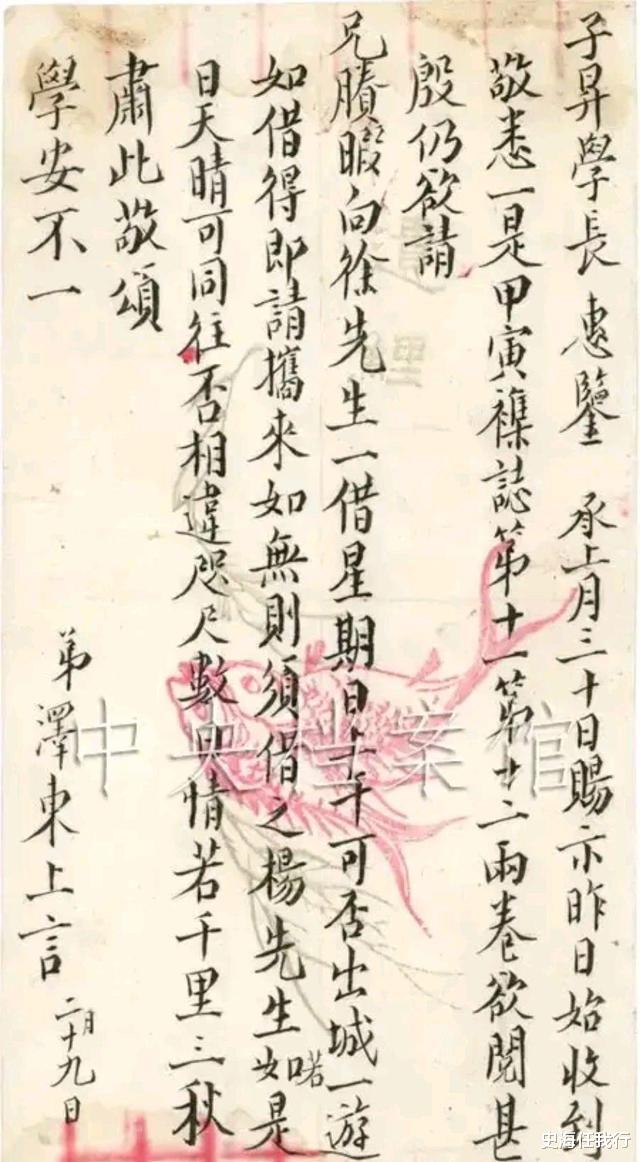 子昇學長惠鑒 承上月三十日賜示昨日始收到
敬悉一是甲寅襍誌第十一第十二兩卷欲閱甚
殷仍欲請
兄賸暇向徐先生一借星期日上午可否出城一遊
如借得即請攜來如無則須借之楊先生如喏是
日天晴可同往否相違咫尺數日情若千里三秋
肅此敬頌
學安不一
弟澤東上言 二月十九日
中央档案馆
史海任我行